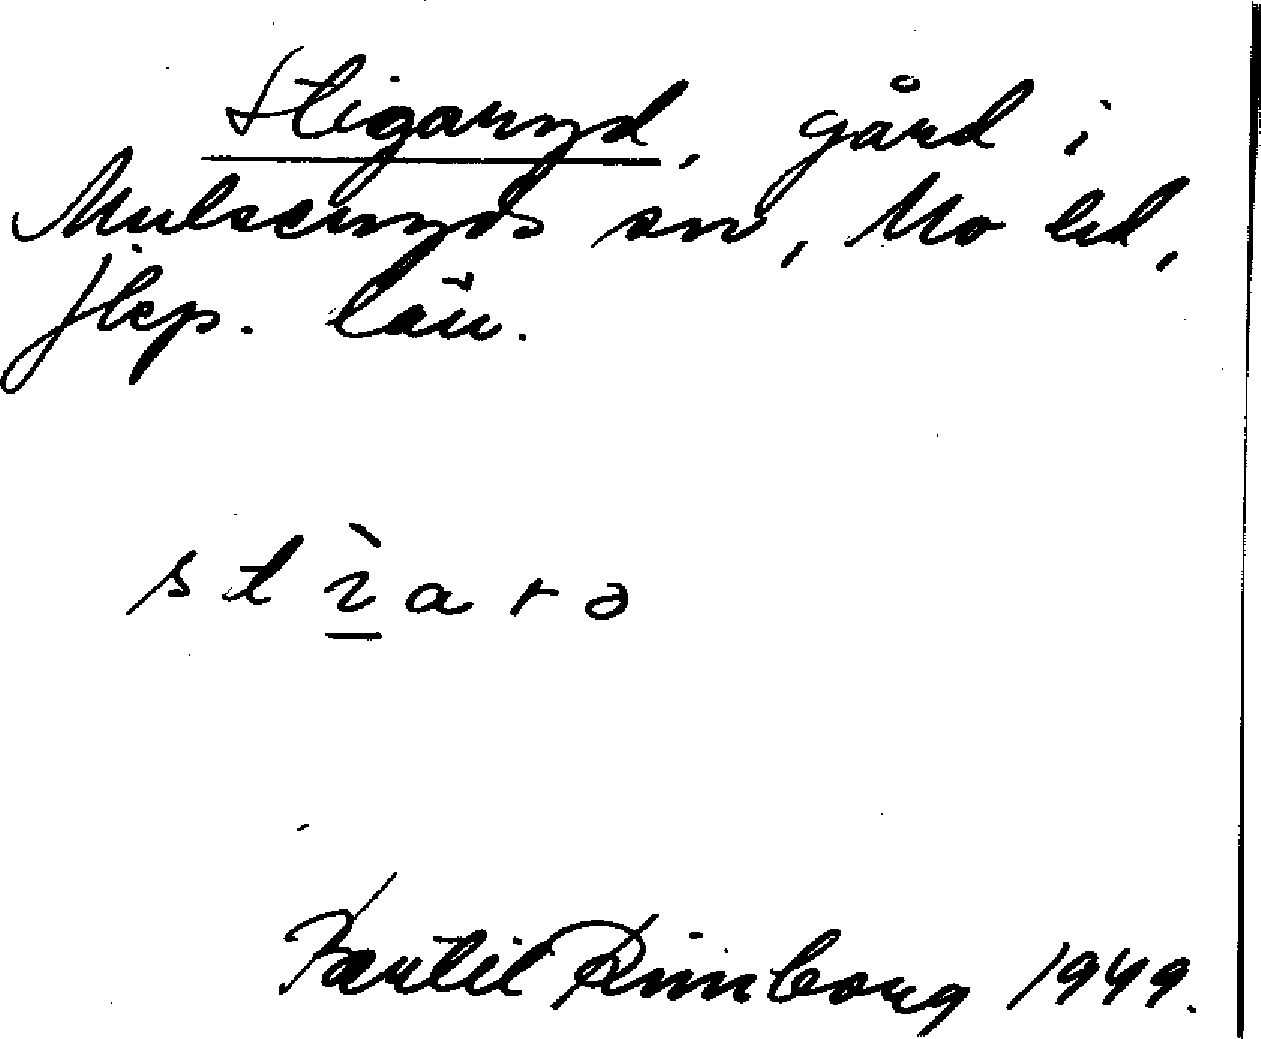 Stigaryd, gård i
Mulseryds sn, Mo hd,
Jkp. län.
stìarə
Bertil Rimborg 1949.